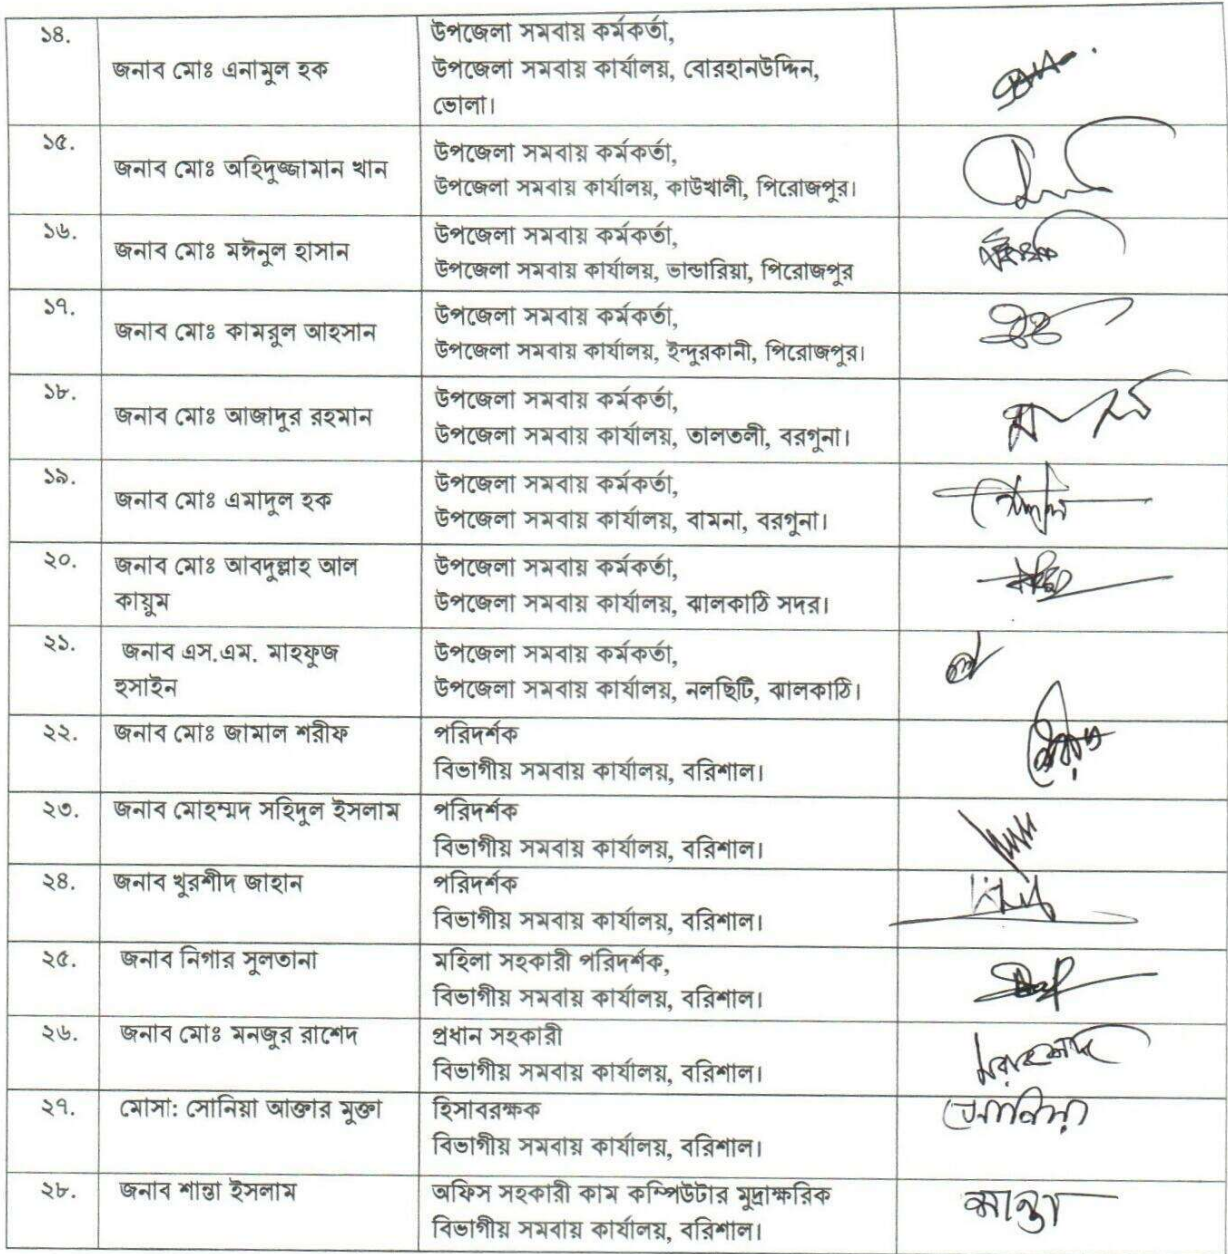 ১৪.
জনাব মোঃ এনামুল হক
উপজেলা সমবায় কর্মকর্তা,
উপজেলা সমবায় কার্যালয়, বোরহানউদ্দিন,
ভোলা।
১৫.
জনাব মোঃ অহিদুজ্জামান খান
উপজেলা সমবায় কর্মকর্তা,
উপজেলা সমবায় কার্যালয়, কাউখালী, পিরোজপুর।
১৬.
জনাব মোঃ মঈনুল হাসান
উপজেলা সমবায় কর্মকর্তা,
উপজেলা সমবায় কার্যালয়, ভান্ডারিয়া, পিরোজপুর
১৭.
জনাব মোঃ কামরুল আহসান
উপজেলা সমবায় কর্মকর্তা,
উপজেলা সমবায় কার্যালয়, ইন্দুরকানী, পিরোজপুর।
১৮.
জনাব মোঃ আজাদুর রহমান
উপজেলা সমবায় কর্মকর্তা,
উপজেলা সমবায় কার্যালয়, তালতলী, বরগুনা।
১৯.
জনাব মোঃ এমাদুল হক
উপজেলা সমবায় কর্মকর্তা,
উপজেলা সমবায় কার্যালয়, বামনা, বরগুনা।
২০.
জনাব মোঃ আবদুল্লাহ আল
কায়ুম
উপজেলা সমবায় কর্মকর্তা,
উপজেলা সমবায় কার্যালয়, ঝালকাঠি সদর।
২১.
জনাব এস.এম. মাহফুজ
হুসাইন
উপজেলা সমবায় কর্মকর্তা,
উপজেলা সমবায় কার্যালয়, নলছিটি, ঝালকাঠি।
২২.
জনাব মোঃ জামাল শরীফ
পরিদর্শক
বিভাগীয় সমবায় কার্যালয়, বরিশাল।
২৩.
জনাব মোহম্মদ সহিদুল ইসলাম
পরিদর্শক
বিভাগীয় সমবায় কার্যালয়, বরিশাল।
২৪.
জনাব খুরশীদ জাহান
পরিদর্শক
বিভাগীয় সমবায় কার্যালয়, বরিশাল।
২৫.
জনাব নিগার সুলতানা
মহিলা সহকারী পরিদর্শক,
বিভাগীয় সমবায় কার্যালয়, বরিশাল।
২৬.
জনাব মোঃ মনজুর রাশেদ
প্রধান সহকারী
বিভাগীয় সমবায় কার্যালয়, বরিশাল।
২৭.
মোসা: সোনিয়া আক্তার মুক্তা
হিসাবরক্ষক
বিভাগীয় সমবায় কার্যালয়, বরিশাল।
সোনিয়া
২৮.
জনাব শান্তা ইসলাম
অফিস সহকারী কাম কম্পিউটার মুদ্রাক্ষরিক
বিভাগীয় সমবায় কার্যালয়, বরিশাল।
শান্তা